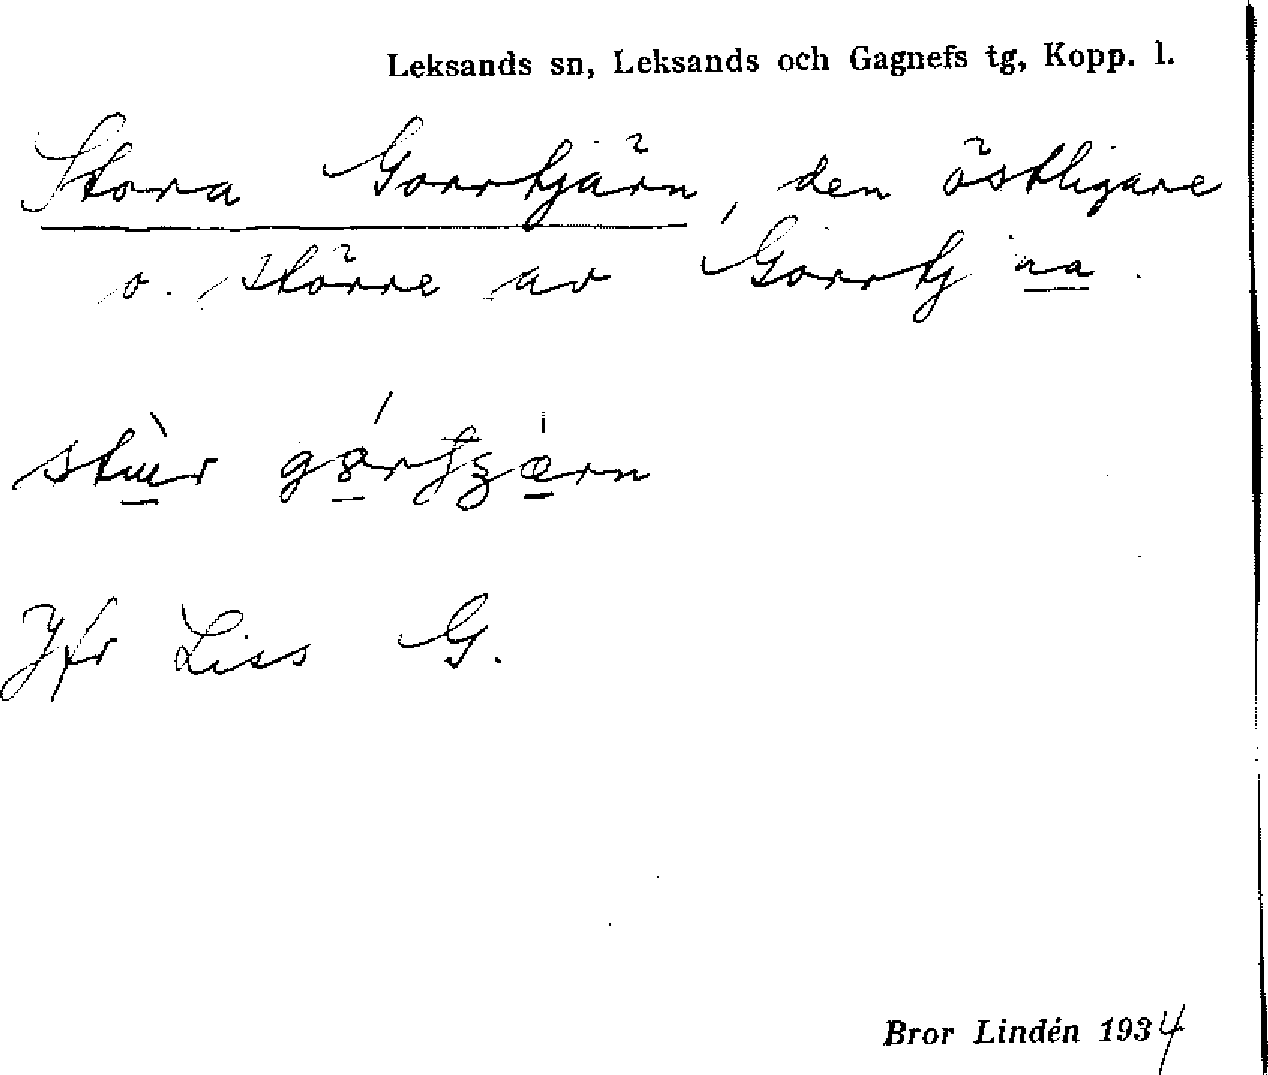 Leksands sn, Leksands och Gagnefs tg, Kopp. l.
Stora Gorrtjärn, den östligare
o. större av Gorrtj:na.
stùr gártjärn
Jfr Liss G.
Bror Lindén 1934